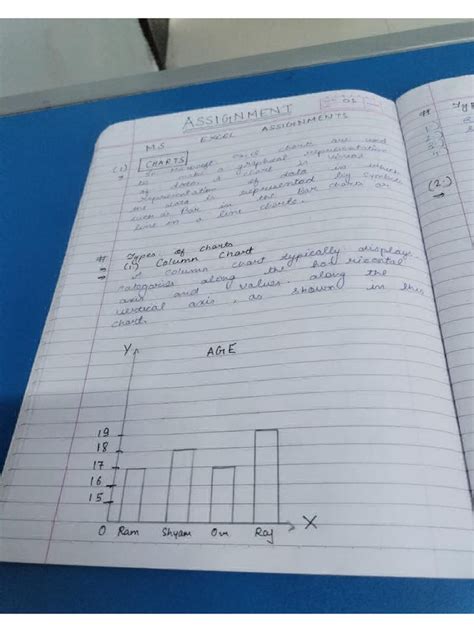 ASSIGNMENT
01
MS EXCEL ASSIGNMENTS
(1) CHARTS
In Microsoft Excel charts are used
to make a graphical representation
of data. A chart is visual
representation of data in which
the data is represented by symbols
such as Bar in the Bar charts or
line in a line charts.
# Types of charts
(1) Column Chart
A column chart typically displays
categories along the horizontal
axis and values along the
vertical axis, as shown in this
chart.
Y AGE
19
18
17
16
15
0 Ram Shyam Om Raj X
# Ty
1)
2)
(2.)